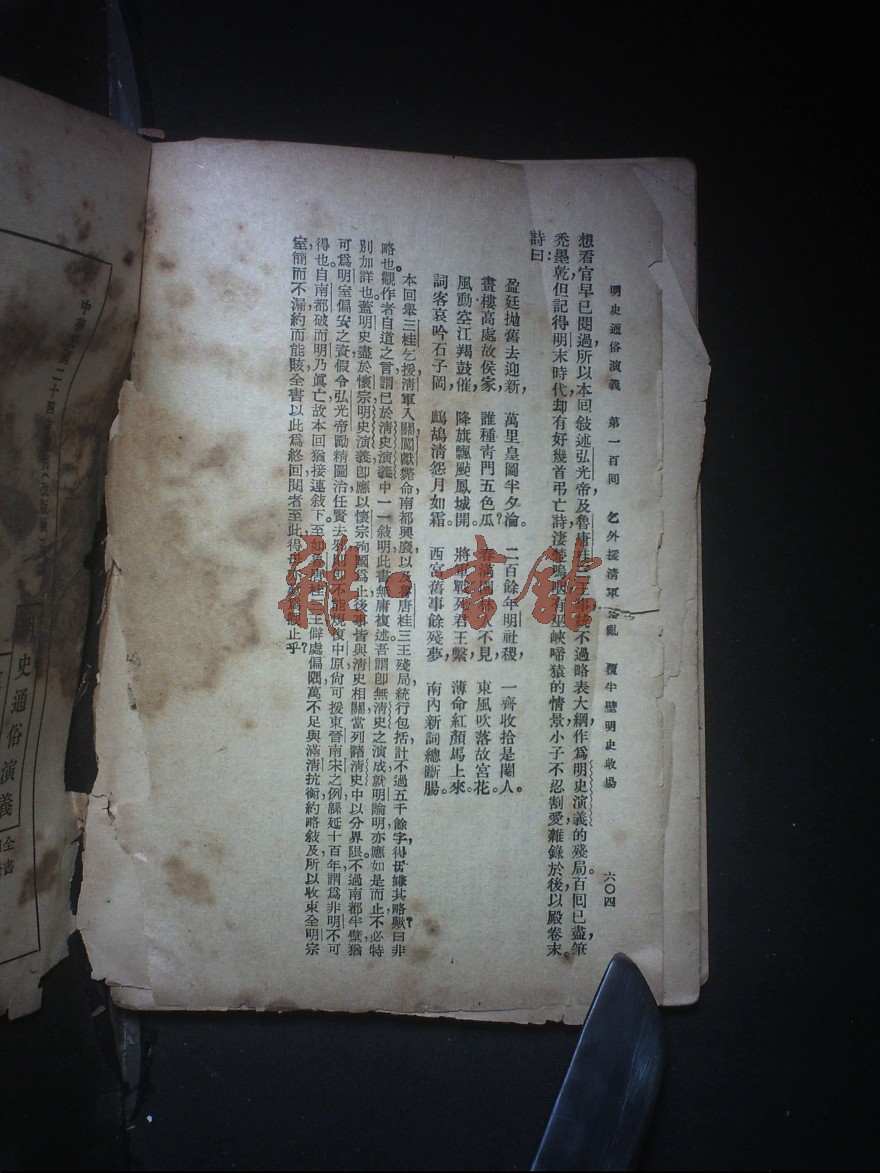 明史通俗演義 第一百回 乞外援清軍定亂 覆半壁明史收場 六〇四
想看官早已閱過,所以本回敍述弘光帝,及魯唐桂三王事,不過略表大綱,作爲明史演義的殘局。百回已盡,筆
禿墨乾,但記得明末時代,却有好幾首弔亡詩,淒楚嗚咽,有巫峽啼猿的情景,小子不忍割愛,雜錄於後,以殿卷末。
詩曰:
盈廷拋舊去迎新, 萬里皇圖半夕淪。 二百餘年明社稷, 一齊收拾是閹人。
畫樓高處故侯家, 誰種青門五色瓜? 不見 東風吹落故宮花。
風動空江羯鼓催, 降旗飄颭鳳城開。 將軍戰死君王繫, 薄命紅顏馬上來。
詞客哀吟石子岡, 鷓鴣清怨月如霜。 西宮舊事餘殘夢, 南內新詞總斷腸。
本回舉三桂乞援,清軍入關,闖獻斃命,南都興廢,以及魯唐桂三王殘局,統行包括,計不過五千餘字,得毋嫌其略歟?曰:非
略也。觀作者自道之言,謂已於清史演義中,一一敍明,此書無庸複述,吾謂卽無清史之演成,就明論明,亦應如是而止,不必特
別加詳也。蓋明史盡於懷宗,明史演義,卽應以懷宗殉國爲止,後事皆與清史相關,當列諸清史中,以分界限,不過南都半壁,猶
可爲明室偏安之資,假令弘光帝勵精圖治,任賢去邪,則卽不能規復中原,尙可援東晉南宋之例,緜延十百年,謂爲非明不可
得也。自南都破而明乃眞亡,故本回猶接連敍下,至如魯唐桂三王,僻處偏隅,萬不足與滿清抗衡,約略敍及,所以收束全明宗
室,簡而不漏,約而能賅,全書以此爲終回,閱者至此,得毋歎爲觀止乎?
秋·書館
史通俗演義
全書